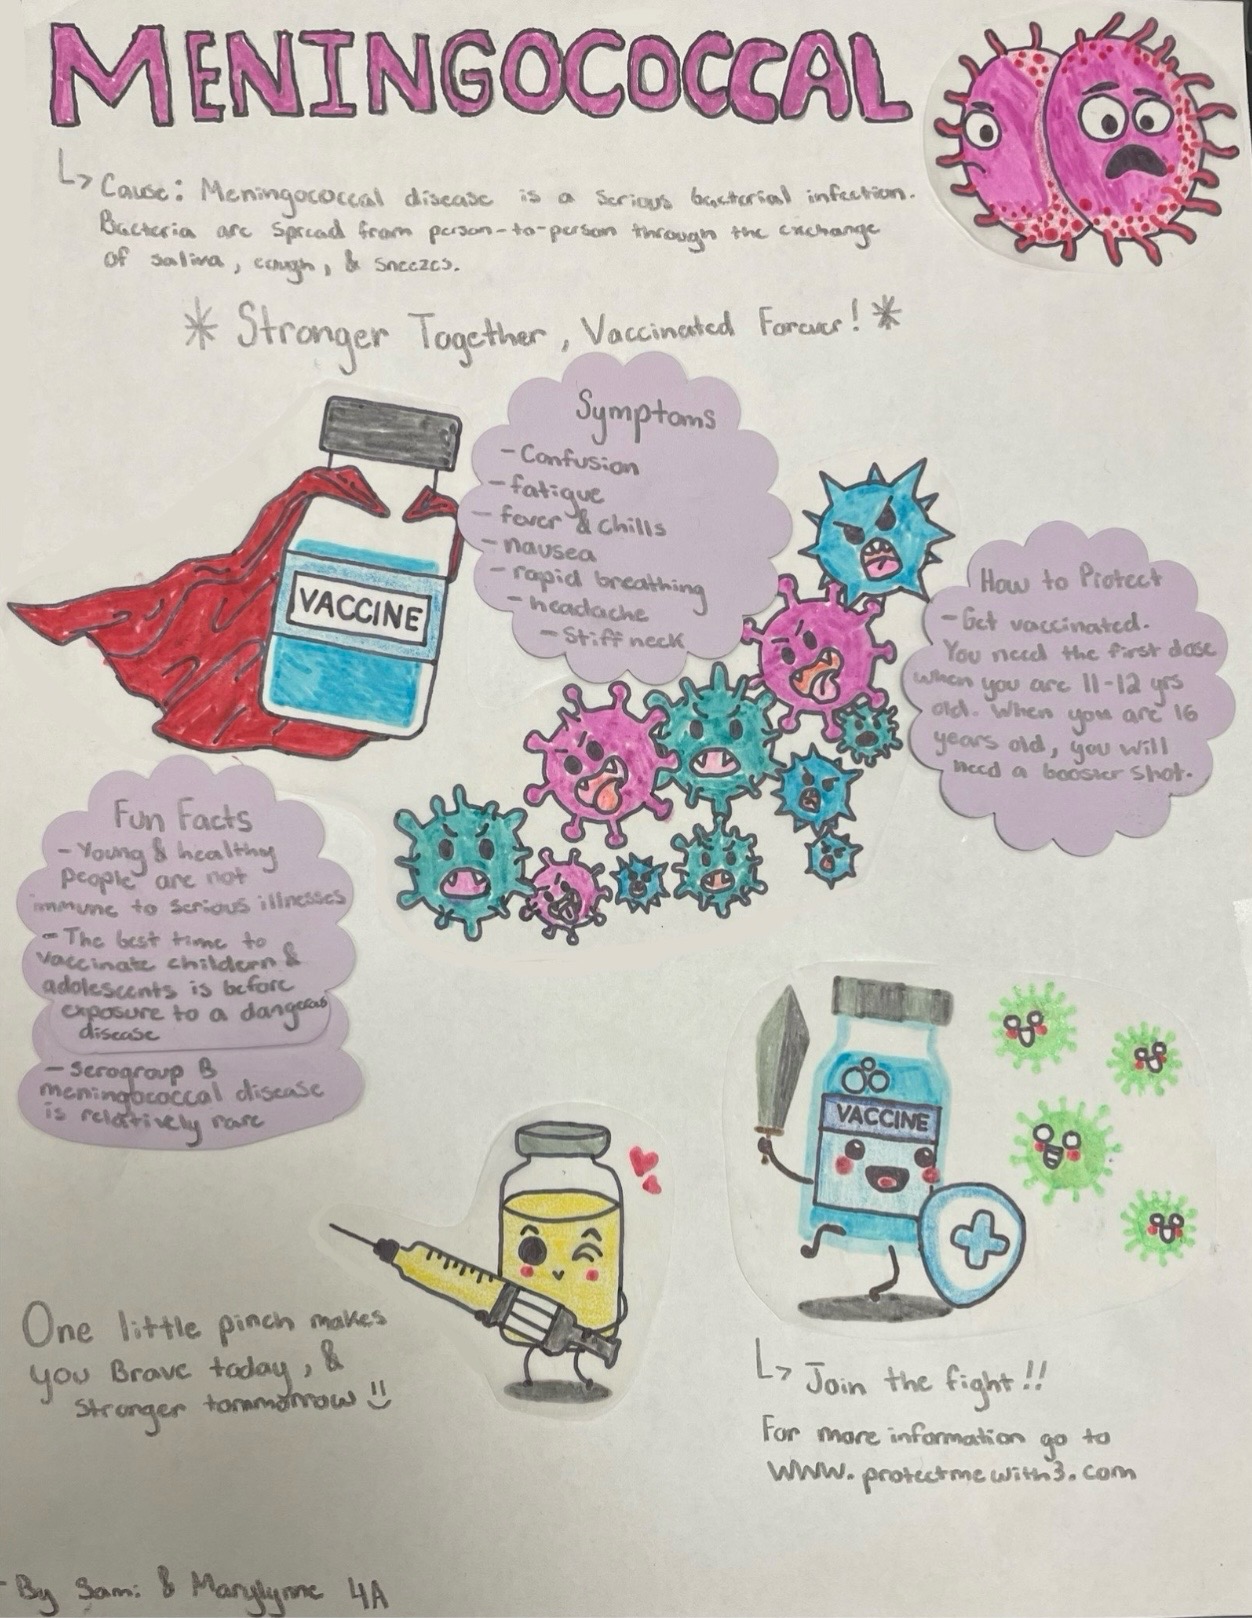 MENINGOCOCCAL
Cause: Meningococcal disease is a serious bacterial infection.
Bacteria are spread from person-to-person through the exchange
of saliva, cough, & sneezes.
* Stronger Together, Vaccinated Forever! *
Symptoms
- Confusion
- fatigue
- fever & chills
- nausea
- rapid breathing
- headache
- Stiff neck
VACCINE
How to Protect
- Get vaccinated.
You need the first dose
when you are 11-12 yrs
old. When you are 16
years old, you will
need a booster shot.
Fun Facts
- Young & healthy
people are not
immune to serious illnesses
- The best time to
vaccinate childern &
adolescents is before
exposure to a dangerous
disease
- Serogroup B
meningococcal disease
is relatively rare
VACCINE
One little pinch makes
you Brave today, &
Stronger tommorrow
Join the fight!!
For more information go to
www.protectmewith3.com
- By Sami & Marylynne 4A